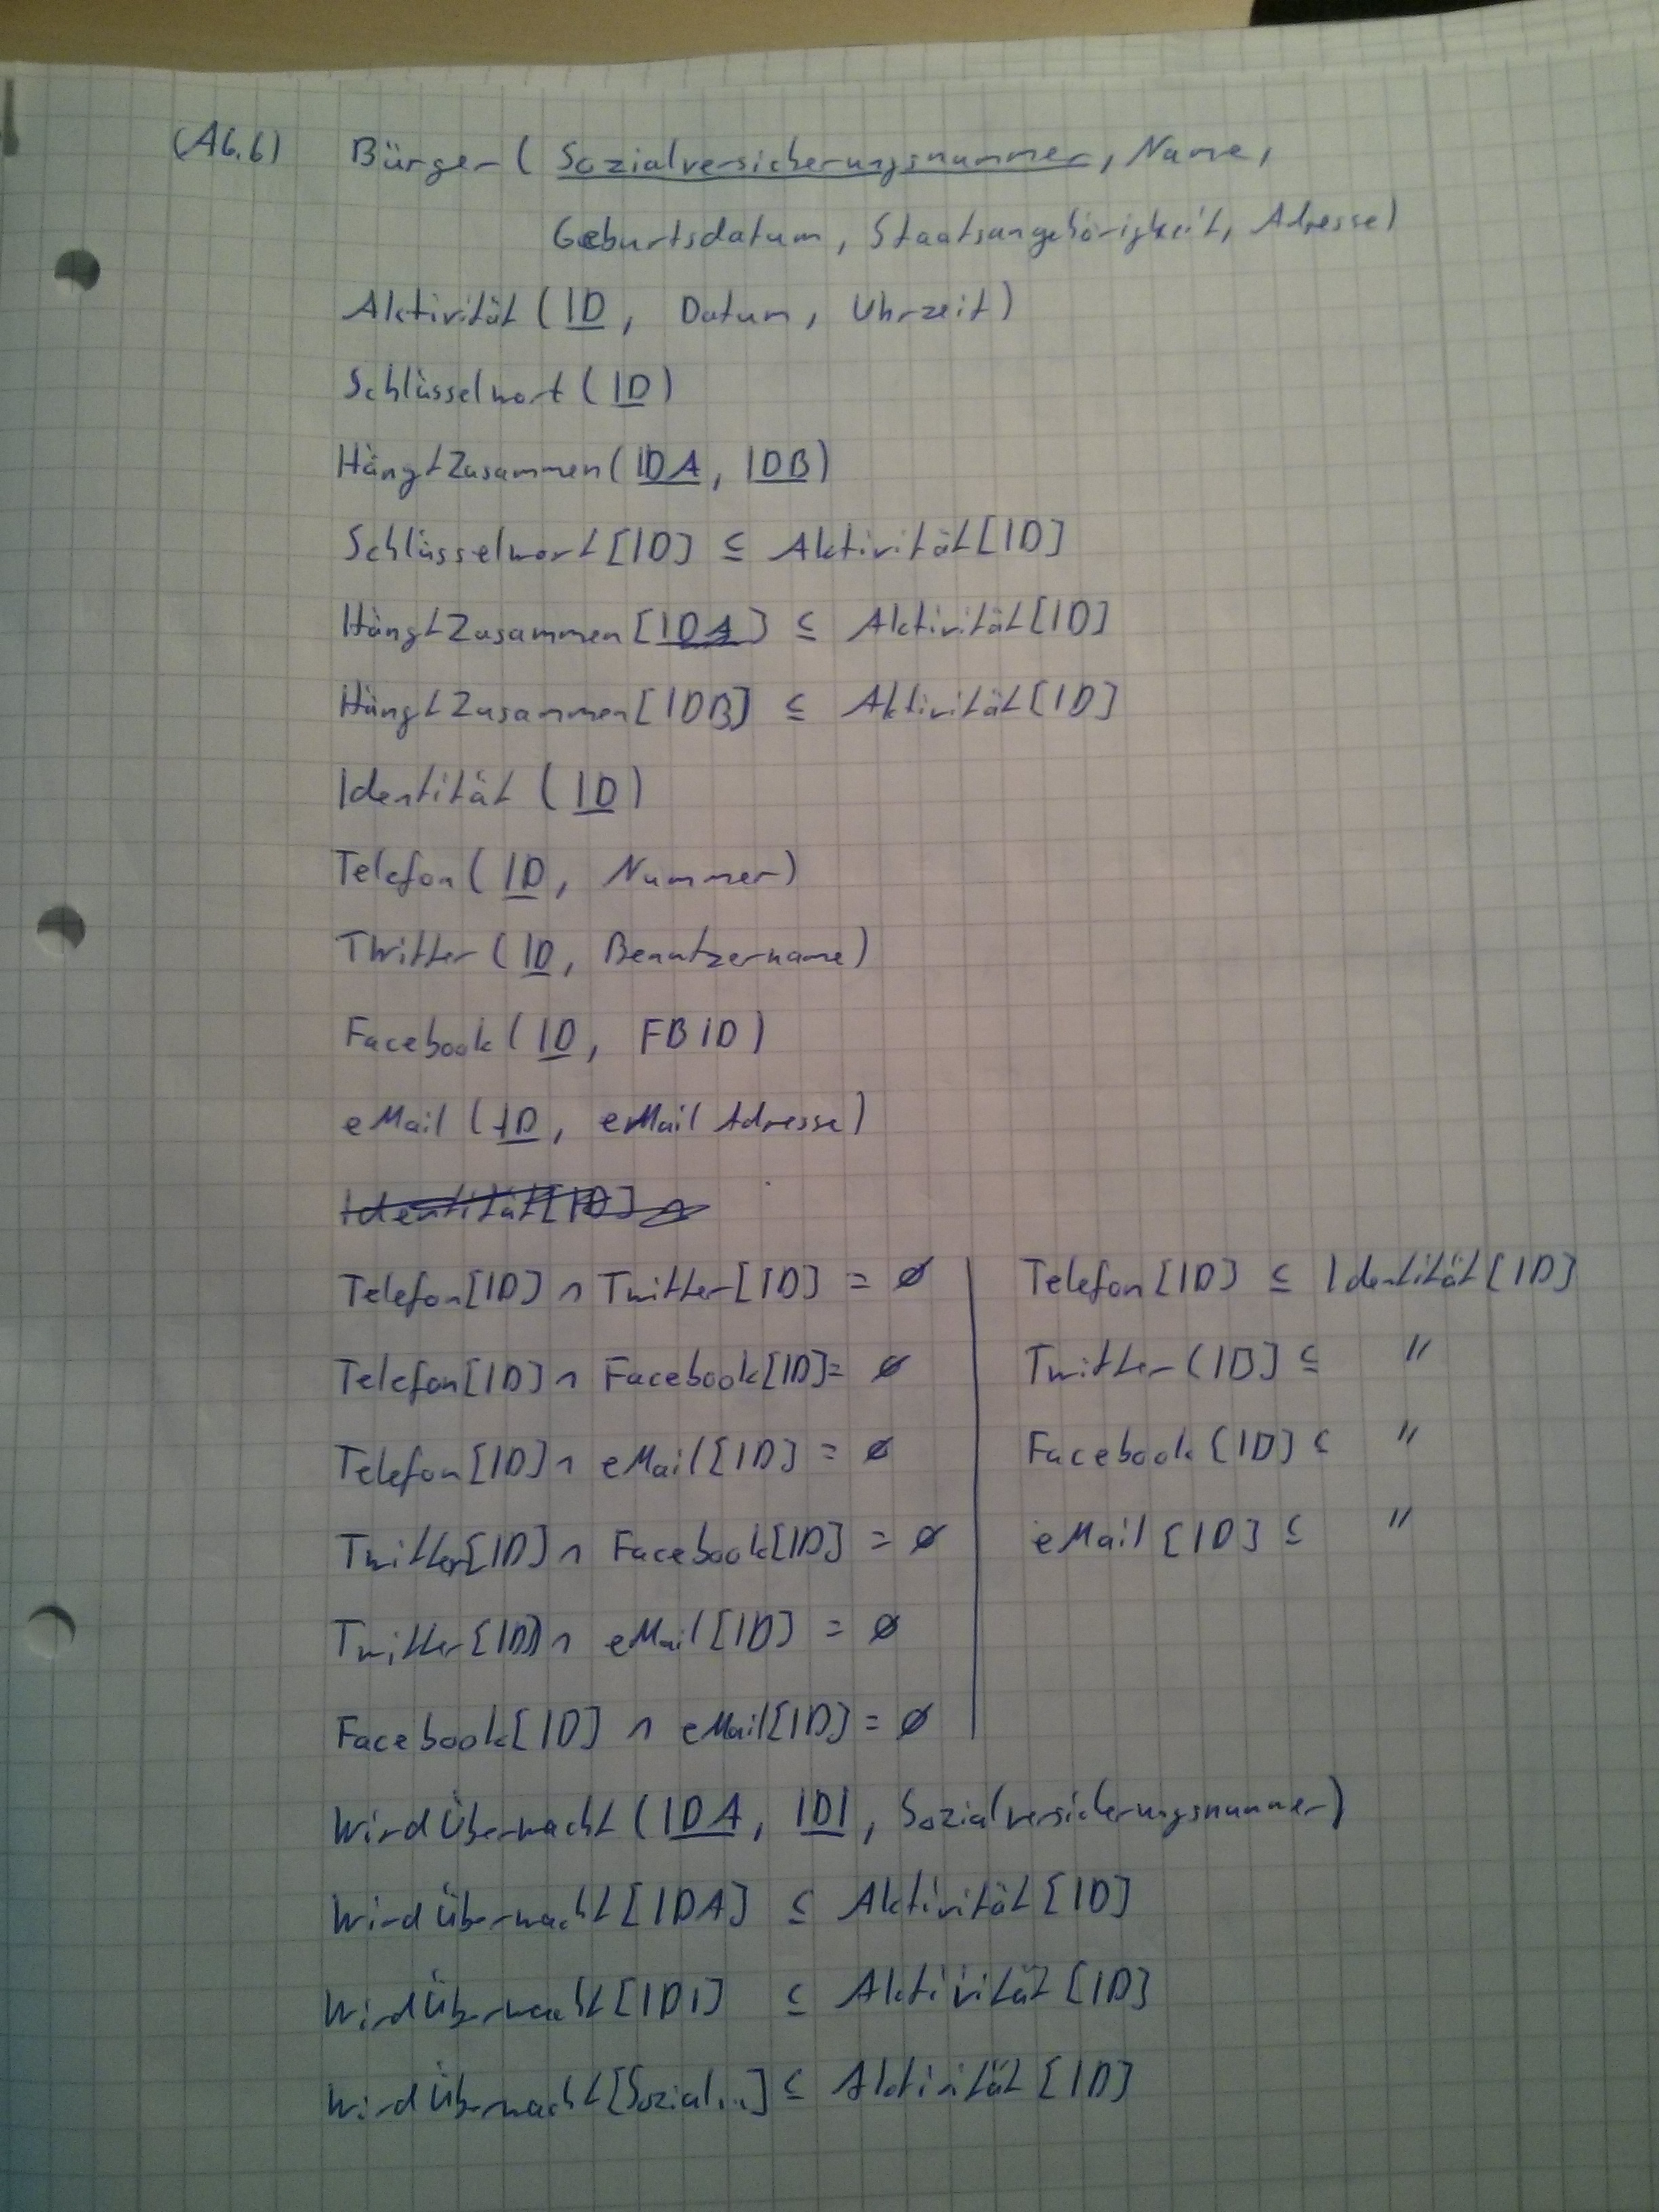 (A6.6) Bürger( Sozialversicherungsnummer, Name,
Geburtsdatum, Staatsangehörigkeit, Adresse)
Aktivität ( ID, Datum, Uhrzeit)
Schlüsselwort ( ID)
HängtZusammen( IDA, IDB)
Schlüsselwort[ID] ⊆ Aktivität[ID]
HängtZusammen[IDA] ⊆ Aktivität[ID]
HängtZusammen[IDB] ⊆ Aktivität[ID]
Identität ( ID)
Telefon( ID, Nummer)
Twitter ( ID, Benutzername)
Facebook ( ID, FBID)
eMail ( ID, eMail Adresse)
Identität[ID]
Telefon[ID] ∩ Twitter[ID] = ∅
Telefon[ID] ∩ Facebook[ID] = ∅
Telefon[ID] ∩ eMail[ID] = ∅
Twitter[ID] ∩ Facebook[ID] = ∅
Twitter[ID] ∩ eMail[ID] = ∅
Facebook[ID] ∩ eMail[ID] = ∅
Telefon[ID] ⊆ Identität[ID]
Twitter[ID] ⊆ "
Facebook[ID] ⊆ "
eMail[ID] ⊆ "
WirdÜberwacht ( IDA, IDI, Sozialversicherungsnummer)
WirdÜberwacht[IDA] ⊆ Aktivität[ID]
WirdÜberwacht[IDI] ⊆ Aktivität[ID]
WirdÜberwacht[Sozial...] ⊆ Aktivität[ID]